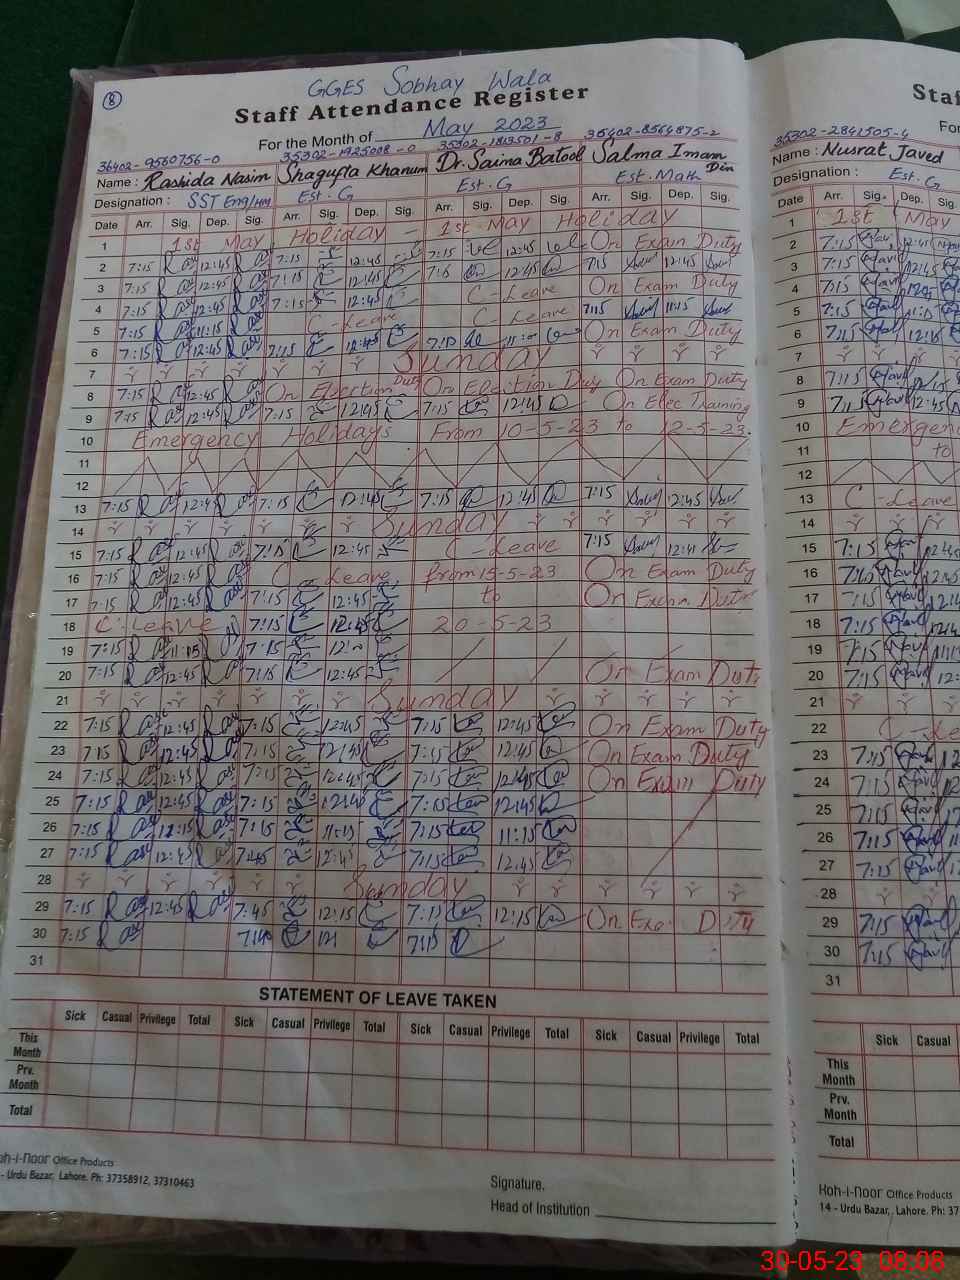 8
GGES Sobhay Wala
Staff Attendance Register
For the Month of May 2023
36402-9560756-0 35302-1925008-0 35302-1813501-8 35402-8564875-2
Name : Rashida Nasim Shagufta Khanum Dr. Saima Batool Salma Imam Din
Designation : SST Eng/Hm Est. G Est. G Est. Math
Date Arr. Sig. Dep. Sig. Arr. Sig. Dep. Sig. Arr. Sig. Dep. Sig. Arr. Sig. Dep. Sig.
1 1st May Holiday - 1st May Holiday
2 7:15 12:45 7:15 12:45 7:15 12:45 On Exam Duty
3 7:15 12:45 7:15 12:45 12:45 7:15 12:45
4 7:15 12:45 7:15 12:45 C-Leave On Exam Duty
5 7:15 11:15 C-Leave C-Leave 7:15 11:15
6 7:15 12:45 7:15 12:45 On Exam Duty
7 Sunday
8 7:15 12:45 On Election Duty On Election Duty On Exam Duty
9 7:15 12:45 7:15 12:45 7:15 12:45 On Elec Training
10 Emergency Holidays From 10-5-23 to 12-5-23.
11
12
13 7:15 12:45 7:15 12:45 7:15 12:45 7:15 12:45
14 Sunday
15 7:15 12:45 7:15 12:45 C-Leave 7:15 12:41
16 7:15 12:45 C Leave from 15-5-23 On Exam Duty
17 7:15 12:45 7:15 12:45 to On Exam Duty
18 C-Leave 7:15 12:45 20-5-23
19 7:15 11:15 7:15
20 7:15 12:45 7:15 12:45 On Exam Duty
21 Sunday
22 7:15 12:45 7:15 12:45 7:15 12:45 On Exam Duty
23 7:15 12:45 7:15 12:45 7:15 12:45 On Exam Duty
24 7:15 12:45 7:15 12:45 7:15 12:45 On Exam Duty
25 7:15 12:45 7:15 12:45 7:15 12:45
26 7:15 11:15 7:15 11:15 7:15 11:15
27 7:15 12:45 7:45 12:45 7:15 12:45
28 Sunday
29 7:15 12:45 7:45 12:15 7:15 12:15 On Exa. Duty
30 7:15 7:15
31
STATEMENT OF LEAVE TAKEN
Sick Casual Privilege Total Sick Casual Privilege Total Sick Casual Privilege Total Sick Casual Privilege Total
This Month
Prv. Month
Total
oh-i-noor Office Products
- Urdu Bazar, Lahore. Ph: 37358912, 37310463
Signature.
Head of Institution
Staf
Fo
35302-2841505-4
Name : Nusrat Javed
Designation : Est. G
Date Arr. Sig. Dep.
1 1st May
2 7:15 12:41
3 7:15 12:45
4 7:15
5 7:15
6 7:15
7
8 7:15
9 7:15 12:45
10 Emergen
11 to
12
13 C-Leave
14
15 7:15
16 12:45
17 7:15
18 7:15
19 7:15
20 7:15
21
22 C-Le
23 7:15
24 7:15
25 7:15
26 7:15
27 7:15
28
29 7:15
30 7:15
31
Sick Casual
This Month
Prv. Month
Total
Koh-i-noor Office Products
14 - Urdu Bazar, Lahore. Ph: 37
30-05-23 08:08